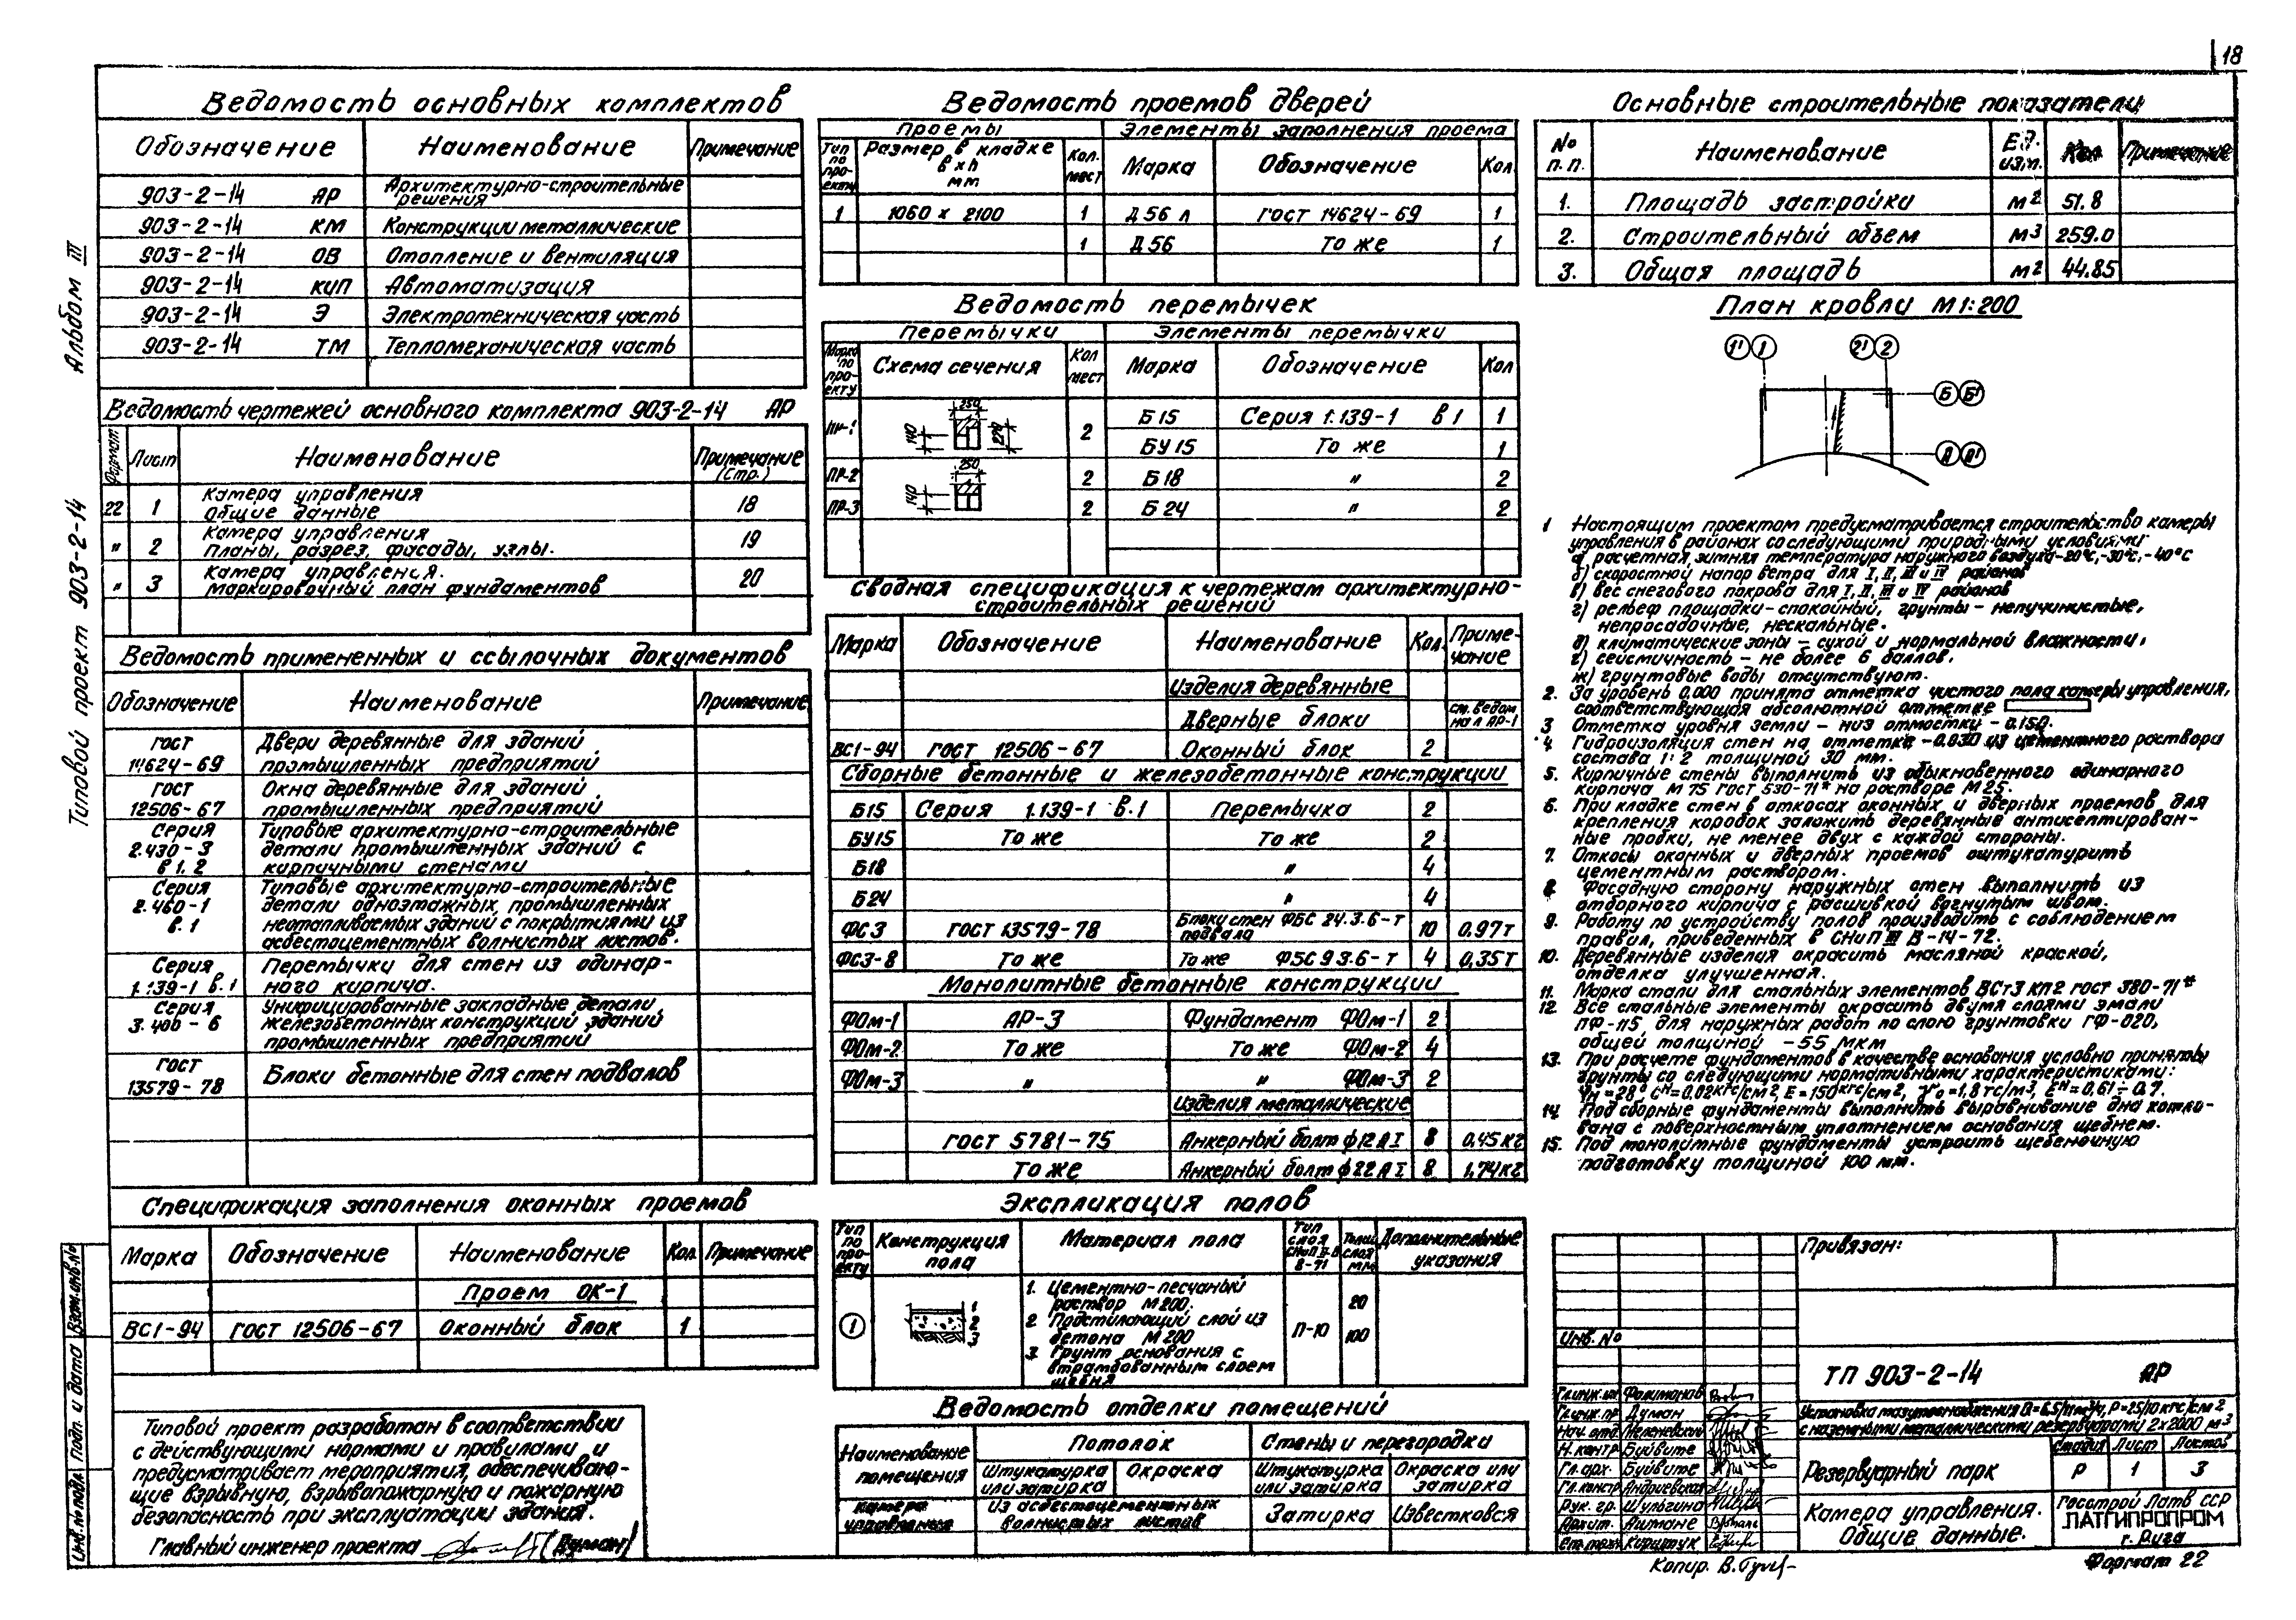 18
Альбом III
Типовой проект 903-2-14
Ведомость основных комплектов
Обозначение Наименование Примечание
903-2-14 АР Архитектурно-строительные решения
903-2-14 КМ Конструкции металлические
903-2-14 ОВ Отопление и вентиляция
903-2-14 КИП Автоматизация
903-2-14 Э Электротехническая часть
903-2-14 ТМ Тепломеханическая часть
Ведомость чертежей основного комплекта 903-2-14 АР
Формат Лист Наименование Примечание (Стр.)
22 1 Камера управления Общие данные 18
" 2 Камера управления Планы, разрез, фасады, узлы. 19
" 3 Камера управления. Маркировочный план фундаментов 20
Ведомость примененных и ссылочных документов
Обозначение Наименование Примечание
ГОСТ Двери деревянные для зданий
14624-69 промышленных предприятий
ГОСТ Окна деревянные для зданий
12506-67 промышленных предприятий
Серия Типовые архитектурно-строительные
2.430-3 детали промышленных зданий с
в 1. 2 кирпичными стенами
Серия Типовые архитектурно-строительные
2.460-1 детали одноэтажных промышленных
в.1 неотапливаемых зданий с покрытиями из
асбестоцементных волнистых листов.
Серия Перемычки для стен из одинар-
1.139-1 в.1 ного кирпича.
Серия Унифицированные закладные детали
3.400-6 железобетонных конструкций зданий
промышленных предприятий
ГОСТ
13579-78 Блоки бетонные для стен подвалов
Спецификация заполнения оконных проемов
Марка Обозначение Наименование Кол. Примечание
Проем ОК-1
ВС1-94 ГОСТ 12506-67 Оконный блок 1
Типовой проект разработан в соответствии
с действующими нормами и правилами и
предусматривает мероприятия, обеспечиваю-
щие взрывную, взрывопожарную и пожарную
безопасность при эксплуатации здания.
Главный инженер проекта (Думан)
Взам.инв.№
Подп. и дата
Инв.№ подл.
Ведомость проемов дверей
Проемы Элементы заполнения проема
Тип по проекту Размер в кладке в х h мм Кол. мест Марка Обозначение Кол.
1 1060 х 2100 1 Д 56 л ГОСТ 14624-69 1
1 Д 56 То же 1
Ведомость перемычек
Перемычки Элементы перемычки
Марка по проекту Схема сечения Кол мест Марка Обозначение Кол
ПР-1 250 140 220 2 Б 15 Серия 1.139-1 в 1 1
БУ 15 То же 1
ПР-2 250 140 2 Б 18 " 2
ПР-3 2 Б 24 " 2
Сводная спецификация к чертежам архитектурно-
строительных решений
Марка Обозначение Наименование Кол. Приме-чание
Изделия деревянные
Дверные блоки см. ведом на л АР-1
ВС1-94 ГОСТ 12506-67 Оконный блок 2
Сборные бетонные и железобетонные конструкции
Б15 Серия 1.139-1 в.1 Перемычка 2
БУ15 То же То же 2
Б18 " 4
Б24 " 4
ФС3 ГОСТ 13579-78 Блоки стен подвала ФБС 24.3.6-т 10 0.97т
ФС3-8 То же То же ФБС 9 3.6-т 4 0,35т
Монолитные бетонные конструкции
ФОм-1 АР-3 Фундамент ФОм-1 2
ФОм-2 То же То же ФОм-2 4
ФОм-3 " " ФОм-3 2
Изделия металлические
ГОСТ 5781-75 Анкерный болт ф12 А I 8 0,45кг
То же Анкерный болт ф22 А I 8 1,74кг
Экспликация полов
Тип по проекту Конструкция пола Материал пола Тип слоя СНиП II-В 8-71 Толщ слоя мм Дополнительные указания
1 1 2 3
1. Цементно-песчаный
раствор М 200. 20
2 Подстилающий слой из
бетона М 200 П-10 100
3. Грунт основания с
втрамбованным слоем
щебня
Ведомость отделки помещений
Наименование помещения Потолок Стены и перегородки
Штукатурка или затирка Окраска Штукатурка или затирка Окраска или затирка
Камера управления Из асбестоцементных волнистых листов Затирка Известковая
Основные строительные показатели
№ п.п. Наименование Ед. изм. Кол Примечание
1. Площадь застройки м2 51.8
2. Строительный объем м3 259.0
3. Общая площадь м2 44.85
План кровли М 1:200
1' 1 2' 2
Б Б'
А А'
1 Настоящим проектом предусматривается строительство камеры
управления в районах со следующими природными условиями
а) расчетная, зимняя температура наружного воздуха -20°С, -30°С, -40°С
б) скоростной напор ветра для I, II, III и IV районов
в) вес снегового покрова для I, II, III и IV районов
г) рельеф площадки - спокойный, грунты - непучинистые,
непросадочные, нескальные.
д) климатические зоны - сухой и нормальной влажности.
е) сейсмичность - не более 6 баллов.
ж) грунтовые воды отсутствуют.
2. За уровень 0.000 принята отметка чистого пола камеры управления,
соответствующая абсолютной отметке
3 Отметка уровня земли - низ отмостки - 0.150.
4 Гидроизоляция стен на отметке -0.030 из цементного раствора
состава 1:2 толщиной 30 мм.
5. Кирпичные стены выполнить из обыкновенного одинарного
кирпича М 75 ГОСТ 530-71* на растворе М 25.
6. При кладке стен в откосах оконных и дверных проемов для
крепления коробок заложить деревянные антисептирован-
ные пробки, не менее двух с каждой стороны.
7. Откосы оконных и дверных проемов оштукатурить
цементным раствором.
8. Фасадную сторону наружных стен выполнить из
отборного кирпича с расшивкой вогнутым швом.
9. Работу по устройству полов производить с соблюдением
правил, приведенных в СНиП III В-14-72.
10. Деревянные изделия окрасить масляной краской,
отделка улучшенная.
11. Марка стали для стальных элементов ВСт3 КП2 ГОСТ 380-71*
12. Все стальные элементы окрасить двумя слоями эмали
ПФ-115 для наружных работ по слою грунтовки ГФ-020,
общей толщиной -55 мкм
13. При расчете фундаментов в качестве основания условно приняты
грунты со следующими нормативными характеристиками:
φн=28° Cн=0,02кгс/см2, Е=150кгс/см2, γ0=1,8тс/м3, Eн=0,61÷0.7.
14. Под сборные фундаменты выполнить выравнивание дна котло-
вана с поверхностным уплотнением основания щебнем.
15. Под монолитные фундаменты устроить щебеночную
подготовку толщиной 100 мм.
Привязан:
Инв. №
ТП 903-2-14 АР
Установка мазутоснабжения Q=6.5/11м3/ч, Р=25/10 кгс/см2
с наземными металлическими резервуарами 2х2000 м3
Гл.инж.пр Думан
Нач. отд.
Н.контр. Буйвите
Гл.арх. Буйвите
Гл.констр Андриевская
Рук. гр. Шульгина
Архит. Аштане
Ст.техн
Резервуарный парк
Стадия Лист Листов
Р 1 3
Камера управления.
Общие данные.
Госстрой Латв ССР
ЛАТГИПРОПРОМ
г. Рига
Копир.
Формат 22